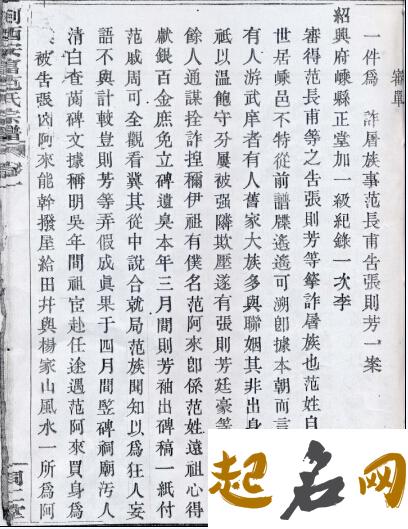 審單
一件爲 詐屠族事范長甫告張則芳一案
紹興府嵊縣正堂加一級紀錄一次李
審得范長甫等之告張則芳等拏詐屠族也范姓自
世居嵊邑不特從前譜牒遙遙可溯卽據本朝而言
有人游武庠者有人舊家大族多與聯姻其非出身
祇以溫飽守分屢被强隣欺壓遂有張則芳廷豪等
餘人通謀拴詐捏稱伊祖有僕名范阿來卽係范姓遠祖心得
獻銀百金庶免立碑遺臭本年三月間則芳袖出碑稿一紙付
范戚周可全觀看冀其從中說合就局范族聞知以爲狂人妄
語不與計較豈則芳等弄假成眞果于四月間竪碑祠廟污人
清白查碑文據稱明吳年間祖宦赴任途遇范阿來買身爲
被告張阿來能幹撥屋給田幷與楊家山風水一所爲阿
剡西范氏宗譜
起名网